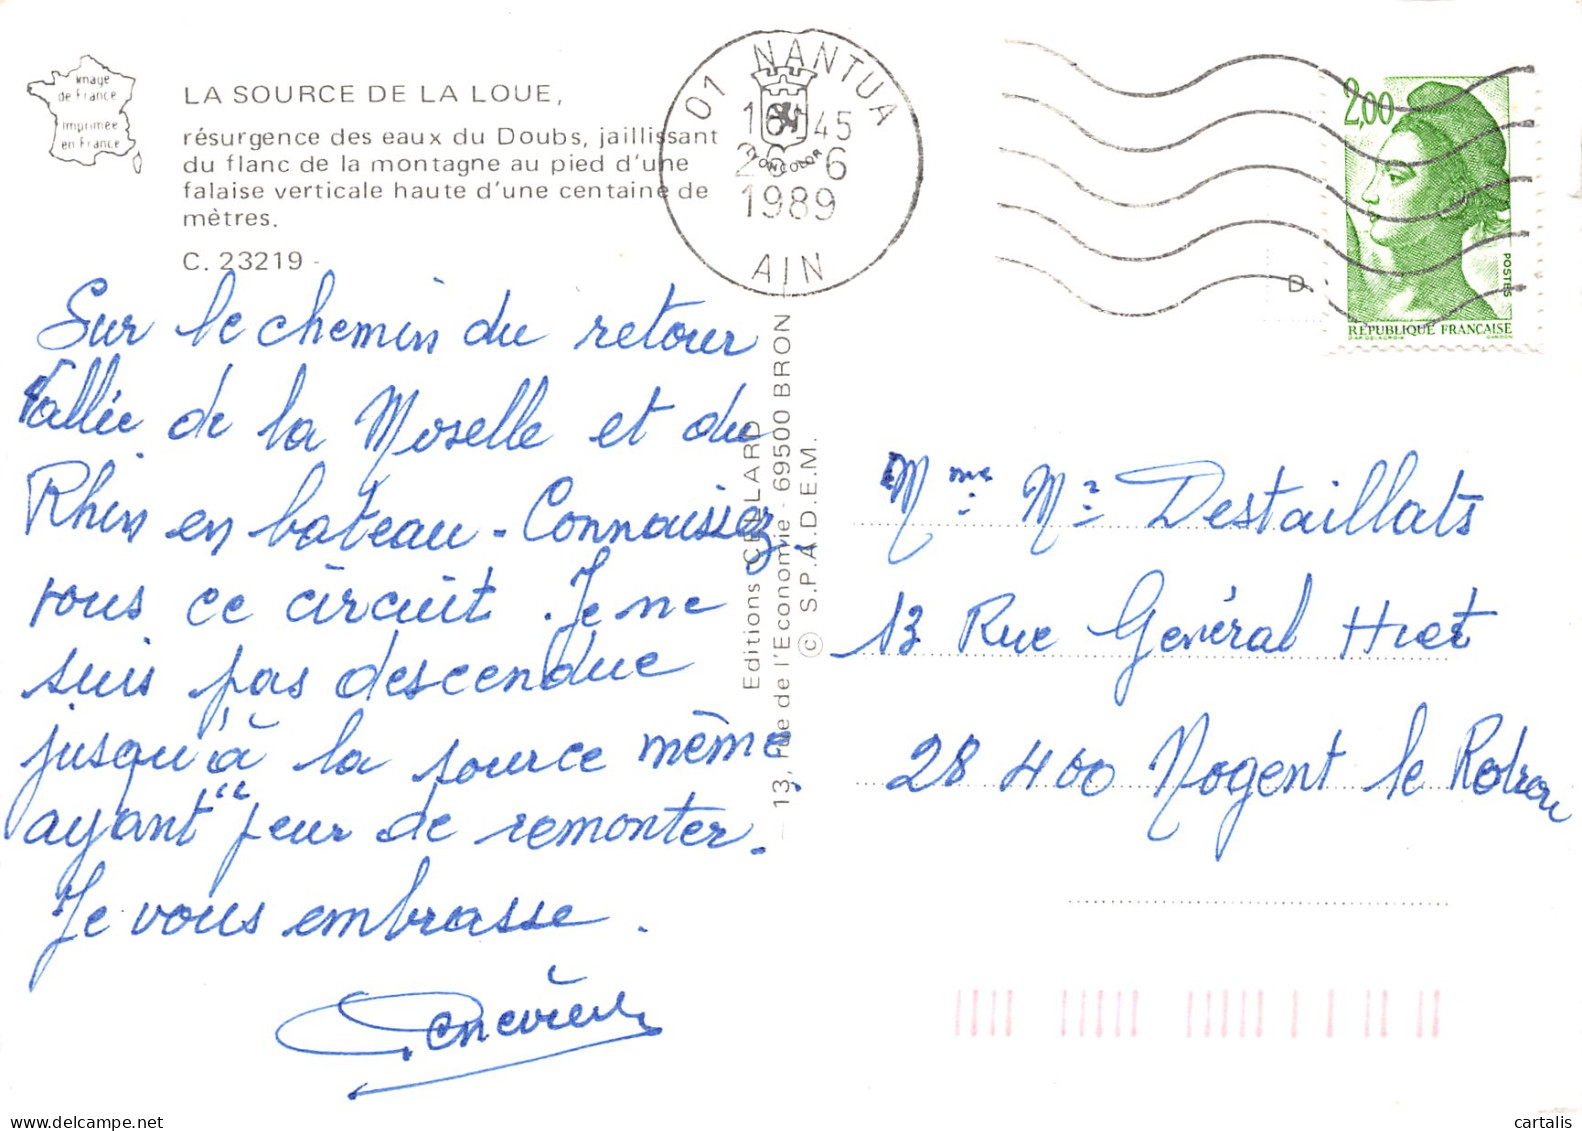 Image
de France
imprimée
en France
LA SOURCE DE LA LOUE,
résurgence des eaux du Doubs, jaillissant
du flanc de la montagne au pied d'une
falaise verticale haute d'une centaine de
mètres.
C. 23219 -
01 NANTUA
16 45
6
1989
AIN
LYONCOLOR
2,00
POSTES
RÉPUBLIQUE FRANÇAISE
D'AP. DELACROIX GANDON
D.
Sur le chemin du retour
Vallée de la Moselle et du
Rhin en bateau - Connaissez
vous ce circuit. Je ne
suis pas descendue
jusqu'à la source même
ayant peur de remonter.
Je vous embrasse.
Geneviève
Editions CELLARD
13, rue de l'Economie - 69500 BRON
© S.P.A.D.E.M.
Mme Mr Destaillats
13 Rue Général Huet
28 400 Nogent le Rotrou
cartalis